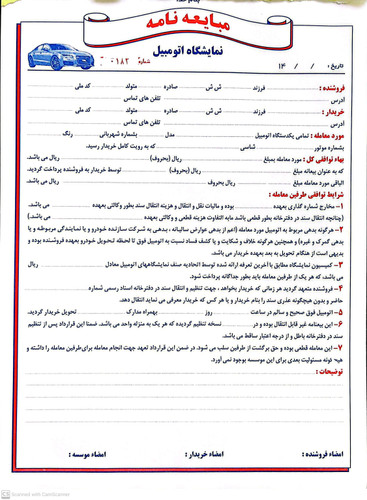 بسمه تعالی
مبایعه نامه
نمایشگاه اتومبیل
شماره ۱۸۲
تاریخ : / / ۱۴
فروشنده : فرزند ش ش صادره متولد کد ملی
آدرس تلفن های تماس
خریدار : فرزند ش ش صادره متولد کد ملی
آدرس تلفن های تماس
مورد معامله : تمامی یکدستگاه اتومبیل مدل بشماره شهربانی رنگ
بشماره موتور شاسی که به رویت کامل خریدار رسید.
بهاء توافقی کل : مورد معامله بمبلغ ریال (بحروف) ریال می باشد.
که به عنوان بیعانه مبلغ ریال (بحروف) توسط خریدار به فروشنده پرداخت گردید.
الباقی مورد معامله بمبلغ ریال می باشد.
شرایط توافقی طرفین معامله :
۱- مخارج شماره گذاری بعهده بوده و مالیات نقل و انتقال و هزینه انتقال سند بطور وکالتی بعهده می باشد.
(چنانچه انتقال سند در دفترخانه بطور قطعی باشد مابه التفاوت هزینه قطعی و وکالتی بعهده می باشد)
۲- هرگونه بدهی مربوط به اتومبیل مورد معامله (اعم از بدهی عوارض سالیانه ، بدهی به شرکت سازنده خودرو و یا نمایندگی مربوطه و یا
بدهی گمرک و غیره) و همچنین هرگونه خلاف و شکایت و یا کشف فساد نسبت به اتومبیل فوق تا لحظه تحویل خودرو بعهده فروشنده بوده و
بدیهی است از هنگام تحویل به بعد بعهده خریدار می باشد.
۳- کمیسیون نمایشگاه مطابق با آخرین تعرفه ارائه شده توسط اتحادیه صنف نمایشگاههای اتومبیل معادل ریال
می باشد، که هر یک از طرفین معامله باید بطور جداگانه پرداخت شود.
۴- فروشنده متعهد گردید هر زمانی که خریدار بخواهد ، جهت تنظیم و انتقال سند در دفترخانه اسناد رسمی شماره
حاضر و بدون هیچگونه عذری سند را بنام خریدار و یا هر کس که خریدار معرفی می نماید انتقال دهد.
۵- اتومبیل فوق صحیح و سالم در ساعت روز بهمراه مدارک تحویل خریدار گردید.
۶- این بیعنامه غیر قابل انتقال بوده و در نسخه تنظیم گردیده که هر یک به منزله واحد می باشد. ضمنا این قرارداد پس از تنظیم
سند در دفترخانه باطل و از درجه اعتبار ساقط می باشد.
۷- این معامله قطعی بوده و حق برگشت از طرفین سلب می شود. در ضمن این قرارداد تعهد جهت انجام معامله برای طرفین معامله را داشته و
هیچ گونه مسئولیت بعدی برای این موسسه بوجود نمی آورد.
توضیحات :
امضاء فروشنده : امضاء خریدار : امضاء موسسه :
CS Scanned with CamScanner